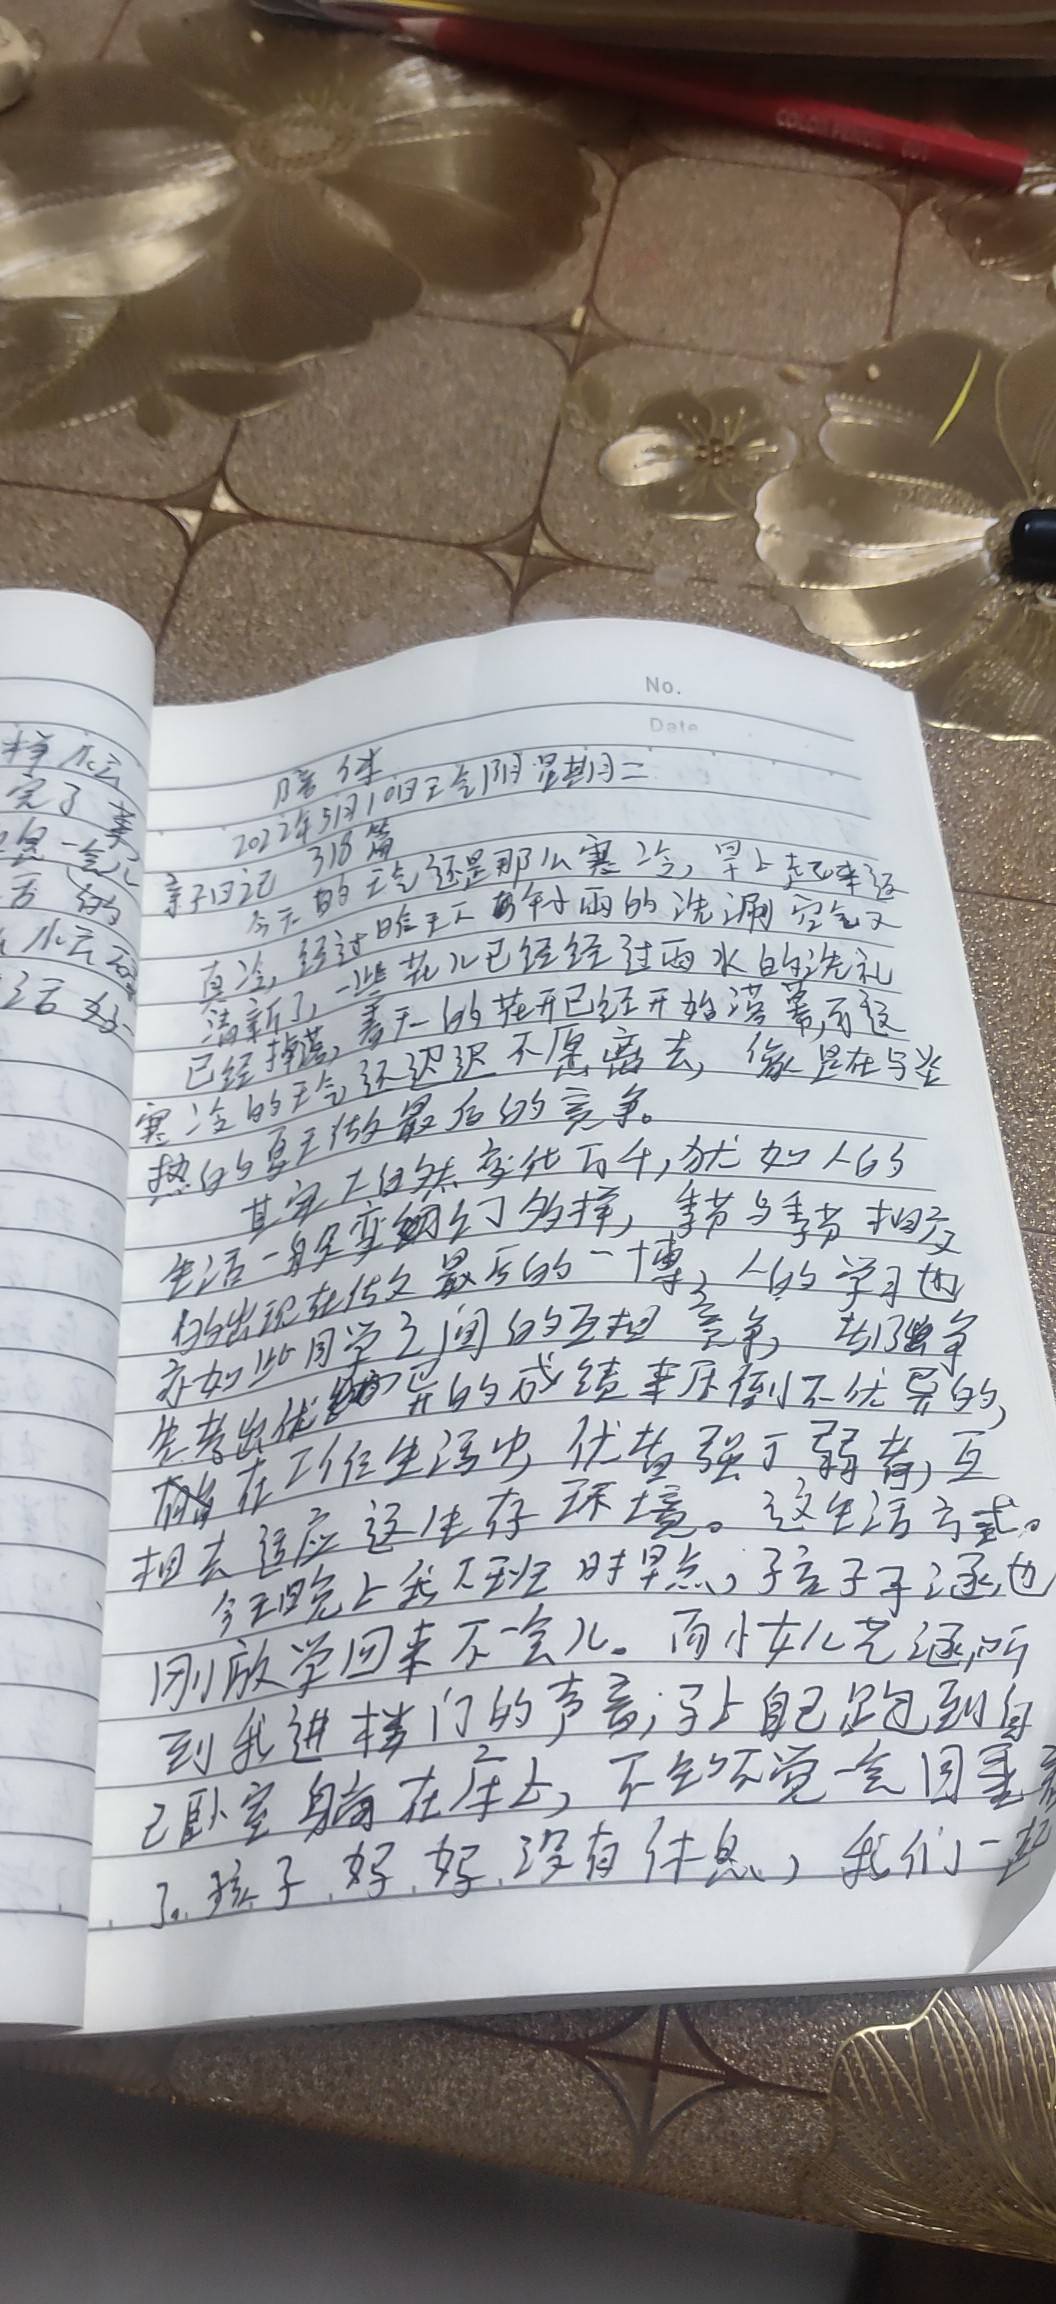 COLOR PENCIL
No.
Date
陪伴
2022年5月10日天气阴 星期二
亲子日记 318篇
今天的天气还是那么寒冷，早上起来还
真冷，经过昨天下午小雨的洗涮空气又
清新了，一些花儿已经经过雨水的洗礼
已经掉落，春天的花开已经开始落幕，而这
寒冷的天气还迟迟不愿离去，像是在与炎
热的夏天做最后的竞争。
其实大自然变化万千，犹如人的
生活一身变幻多样，季节与季节相交
的出现在做最后的一博，人的学习也
亦如此同学之间的互相竞争，争
先考出优异的成绩来压倒不优异的，
在工作生活中，优者强于弱者，互
相去适应这生存环境。这生活方式。
今天晚上我下班时早点，孩子子涵也
刚放学回来不一会儿。而小女儿艺涵听
到我进楼门的声音，马上自己跑到自
己卧室躺在床上，不知不觉一会间睡着
了。孩子好好没有休息，我们一起
样
完了
一会儿
的